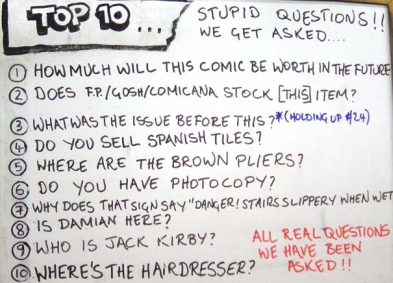 TOP 10 ...
STUPID QUESTIONS!!
WE GET ASKED....
① HOW MUCH WILL THIS COMIC BE WORTH IN THE FUTURE
② DOES F.P./GOSH/COMICANA STOCK [THIS] ITEM?
③ WHAT WAS THE ISSUE BEFORE THIS?*(HOLDING UP #24)
④ DO YOU SELL SPANISH TILES?
⑤ WHERE ARE THE BROWN PLIERS?
⑥ DO YOU HAVE PHOTOCOPY?
⑦ WHY DOES THAT SIGN SAY "DANGER! STAIRS SLIPPERY WHEN WET
⑧ IS DAMIAN HERE?
⑨ WHO IS JACK KIRBY?
⑩ WHERE'S THE HAIRDRESSER?
ALL REAL QUESTIONS
WE HAVE BEEN
ASKED!!